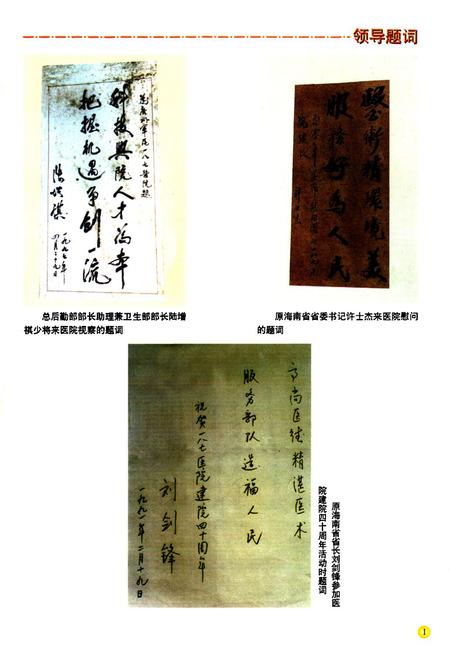 领导题词
为广州军区一八七医院题
科技兴院人才为本
把握机遇争创一流
陆增祺
一九九七年
四月二十九日
总后勤部部长助理兼卫生部部长陆增
祺少将来医院视察的题词
医术精环境美
服务好为人民
原海南省省委书记许士杰来医院慰问
的题词
高尚医德精湛医术
服务部队造福人民
祝贺一八七医院建院四十周年
刘剑锋
一九九一年二月十九日
原海南省省长刘剑锋参加医
院建院四十周年活动时题词
1